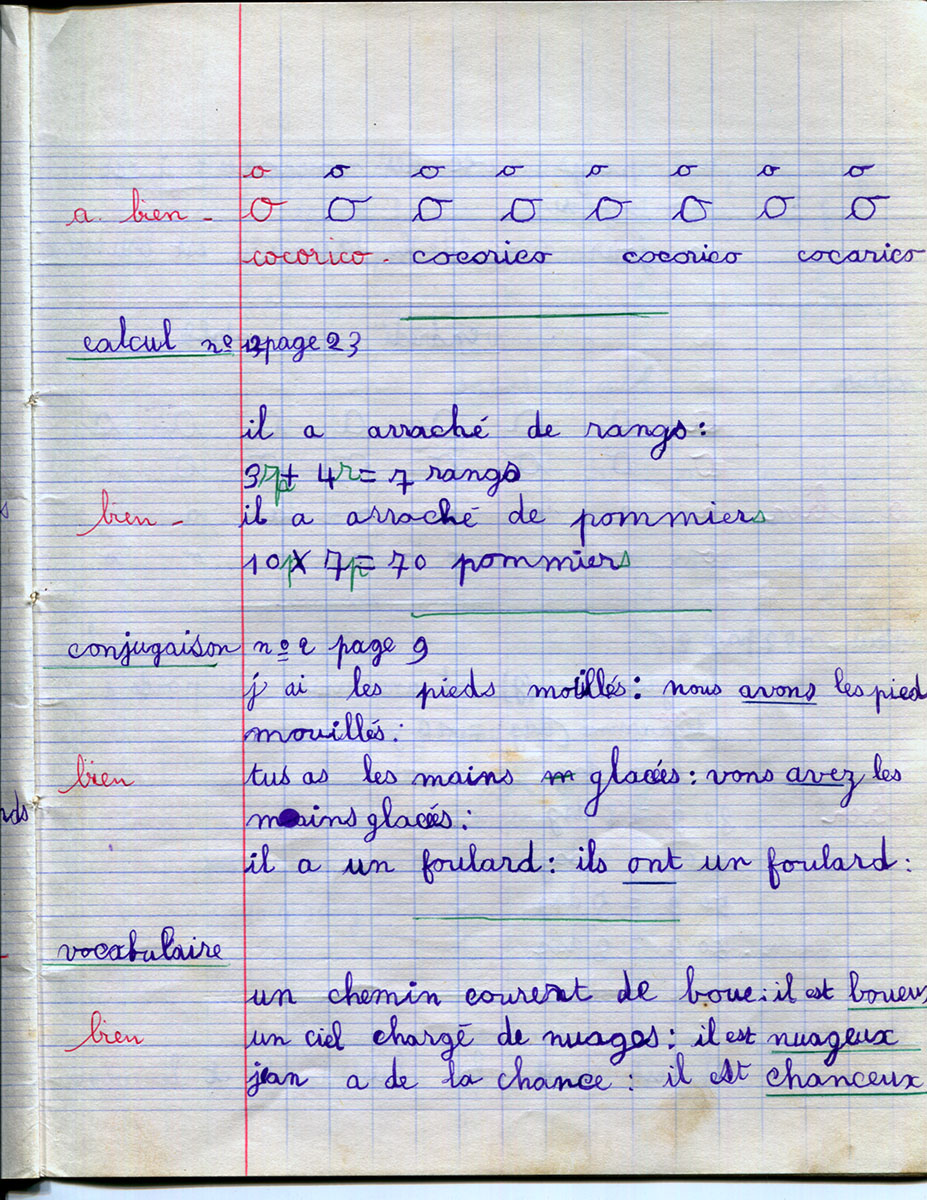 o o o o o o o o
a. bien - O O O O O O O O
cocorico - cocorico cocorico cocarico
calcul nº page 23
il a arraché de rangs:
3r + 4r = 7 rangs
bien - il a arraché de pommiers
10p X 7p = 70 pommiers
conjugaison nº 2 page 9
j'ai les pieds mouillés: nous avons les pied
mouillés:
bien tus as les mains glacées: vons avez les
mains glacées:
il a un foulard: ils ont un foulard:
vocabulaire
un chemin courent de boue: il est boueux
bien un ciel chargé de nuages: il est nuageux
jean a de la chance: il est chanceux